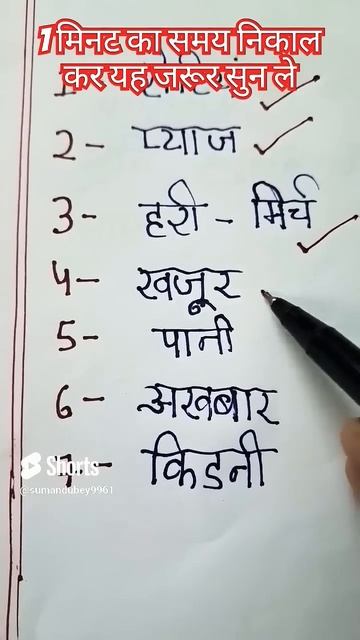 1 मिनट का समय निकाल
कर यह जरूर सुन ले
2- प्याज
3- हरी - मिर्च
4- खजूर
5- पानी
6- अखबार
7- किडनी
Shorts
@sumandubey9961